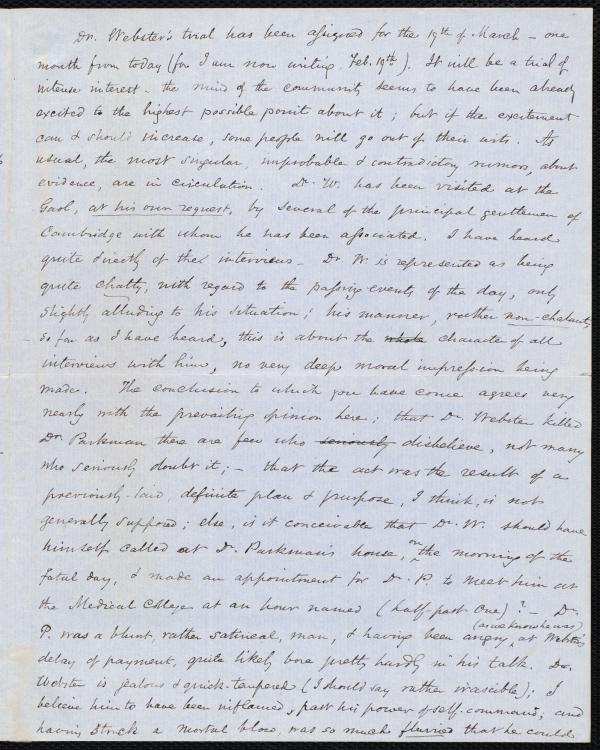 Dr. Webster's trial has been assigned for the 19th of March - one
month from today (for I am now writing Feb. 19th). It will be a trial of
intense interest - the mind of the community seems to have been already
excited to the highest possible point about it; but if the excitement
can & should increase, some people will go out of their wits. As
usual, the most singular, improbable & contradictory rumors, about
evidence, are in circulation. Dr. W. has been visited at the
Gaol, at his own request, by several of the principal gentlemen of
Cambridge with whom he has been associated. I have heard
quite directly of these interviews - Dr. W. is represented as being
quite chatty, with regard to the passing events of the day, only
slightly alluding to his situation; his manner, rather non-chalantly
so far as I have heard, this is about the whole character of all
interviews with him, no very deep moral impression being
made. The conclusion to which you have come agrees very
nearly with the prevailing opinion here; that Dr. Webster killed
Dr. Parkman there are few who seriously disbelieve, not many
who seriously doubt it; - that the act was the result of a
previously-laid, definite plan & purpose, I think, is not
generally supposed; else, is it conceivable that Dr. W. should have
himself called at Dr. Parkman's house, on the morning of the
fatal day, & made an appointment for Dr. P. to meet him at
the Medical College at an hour named (half-past One)? - Dr.
P. was a blunt, rather satirical, man, & having been angry (as we know he was), at Webster's
delay of payment, quite likely bore pretty hardly in his talk. Dr.
Webster is jealous & quick-tempered (I should say rather irascible); I
believe him to have been inflamed, past his power of self-command; and
having struck a mortal blow, was so much flurried that he could